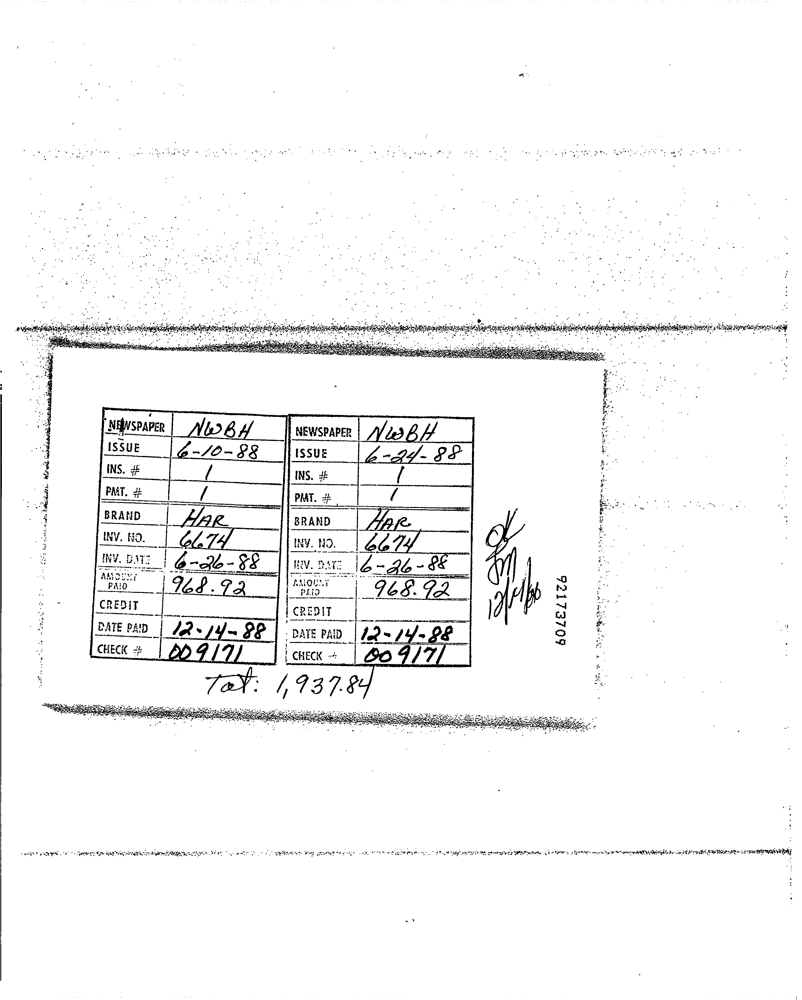 NEWSPAPER NWBH
ISSUE 6-10-88
INS. # 1
PMT. # 1
BRAND HAR
INV. NO. 6674
INV. DATE 6-26-88
AMOUNT PAID 968.92
CREDIT
DATE PAID 12-14-88
CHECK # 009171
NEWSPAPER NWBH
ISSUE 6-24-88
INS. # 1
PMT. # 1
BRAND HAR
INV. NO. 6674
INV. DATE 6-26-88
AMOUNT PAID 968.92
CREDIT
DATE PAID 12-14-88
CHECK # 009171
Tot: 1,937.84
OK
92173709